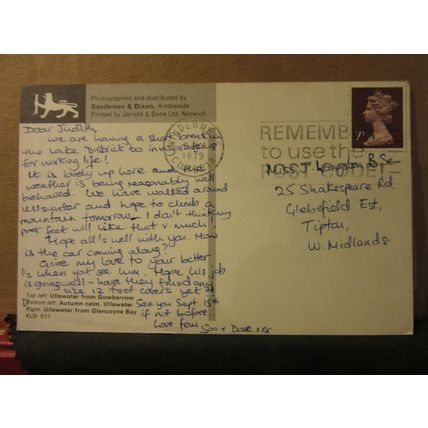 Photographed and distributed by
Sanderson & Dixon, Ambleside
Printed by Jarrold & Sons Ltd, Norwich
Dear Judith,
we are having a short break in
the Lake District to invigorate us
for working life!
It is lovely up here and the
weather is being reasonably well
behaved. We have walked around
Ullswater and hope to climb a
mountain tomorrow - I don't think my
poor feet will like that v. much!
Hope all's well with you. How
is the car coming along?
Give my love to your better
1/2 when yat see him. Hope his job
is going well - have they found any
size 12 foot covers yet?
See you Sept. 15th
if not before
Love from
Soo + Dave xxx
Top left: Ullswater from Gowbarrow
Bottom left: Autumn calm, Ullswater
Right: Ullswater from Glencoyne Bay
KLD 517
1979
REMEMBER
to use the
POSTCODE
7P
Miss J BSc
25 Shakespeare Rd,
Glebefield Est,
Tipton,
W. Midlands